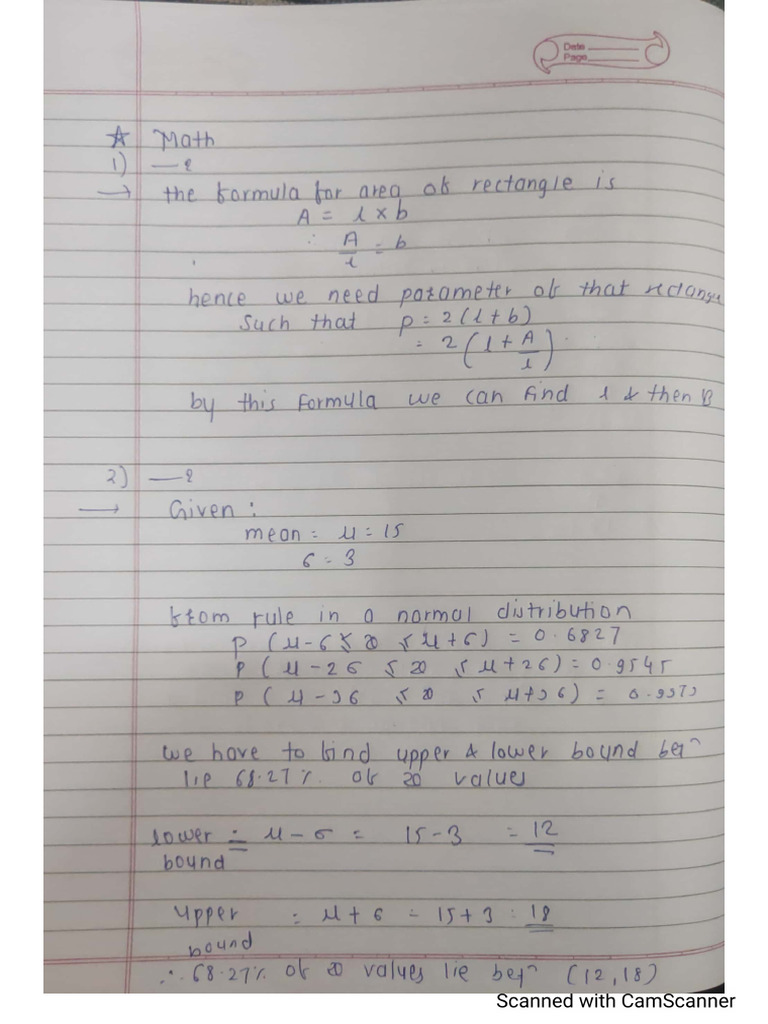 Date
Page
☆ Math
1) —2
→ the formula for area of rectangle is
A = l × b
∴ A/l = b
hence we need parameter of that rectangle
Such that p = 2(l+b)
= 2(l + A/l)
by this formula we can find l & then B
2) —2
→ Given :
mean = μ = 15
σ = 3
from rule in a normal distribution
P (μ-σ ≤ x ≤ μ+σ) = 0.6827
P (μ-2σ ≤ x ≤ μ+2σ) = 0.9545
P (μ-3σ ≤ x ≤ μ+3σ) = 0.9973
we have to find upper & lower bound betn
lie 68.27% of x values
lower = μ-σ = 15-3 = 12
bound
Upper = μ+σ = 15+3 = 18
bound
∴ 68.27% of x values lie betn (12,18)
Scanned with CamScanner